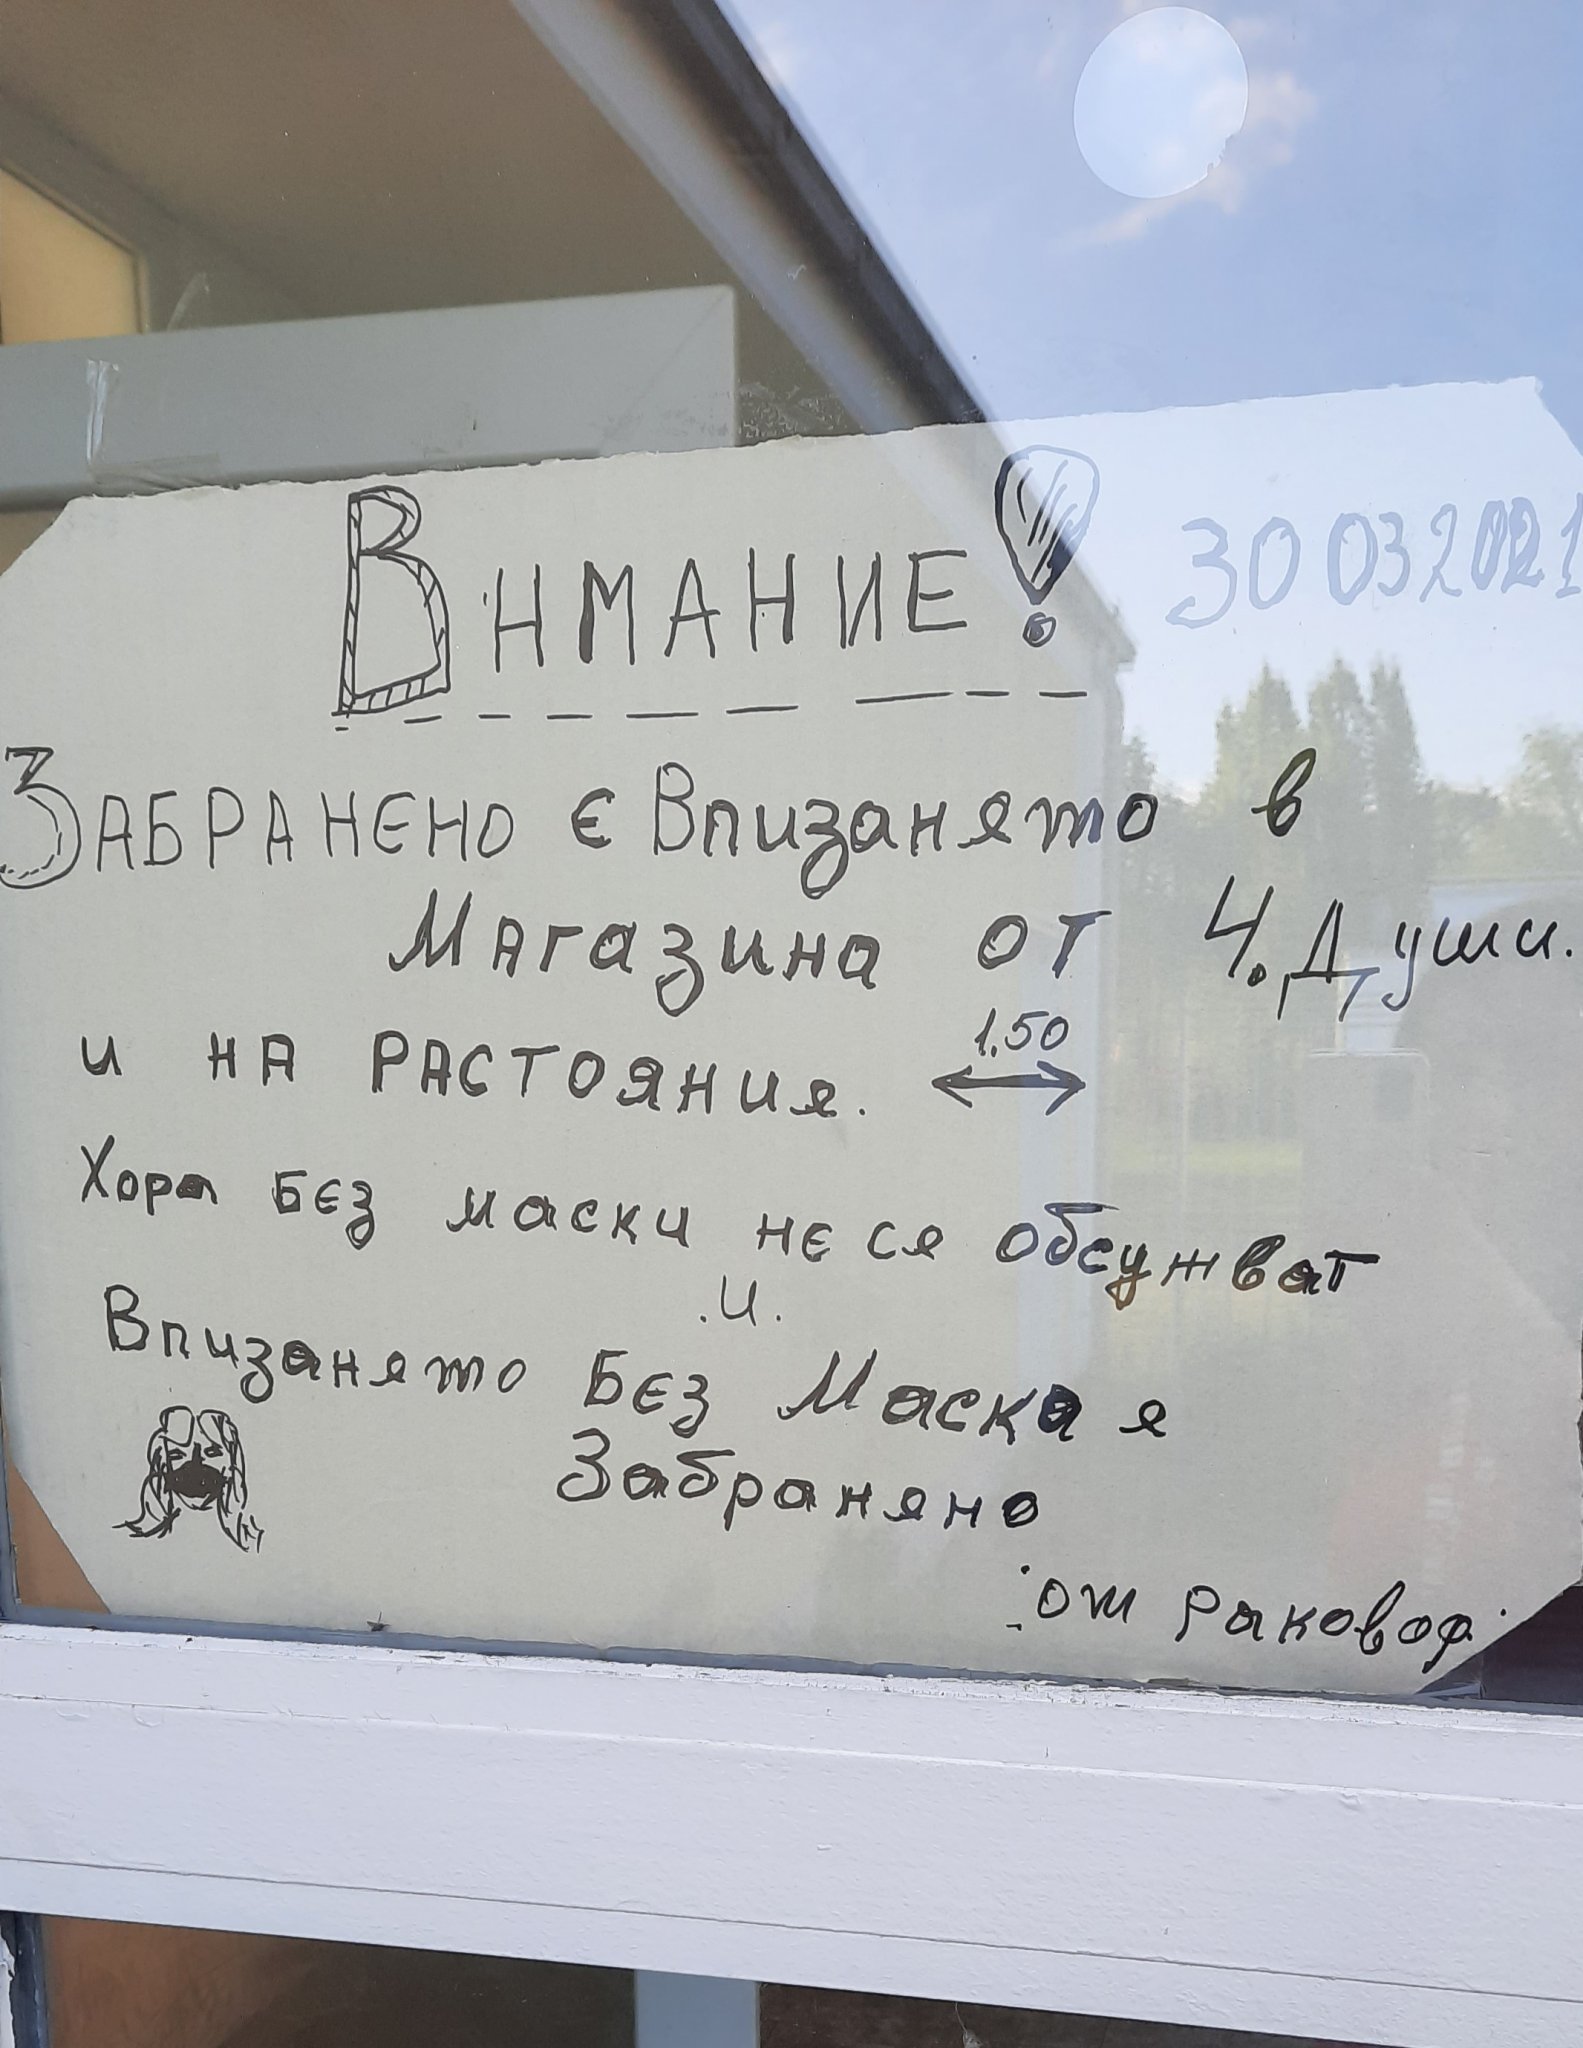 Внимание! 30 03 2021
ЗАБРАНЕНО Є Впизанято в
Магазина от 4. Души.
и НА РАСТОЯНИЯ. 1.50
Хора БЕЗ маски не ся обсужват
.и.
Впизанято БЕЗ Маска я
Забраняно
от Раковод.